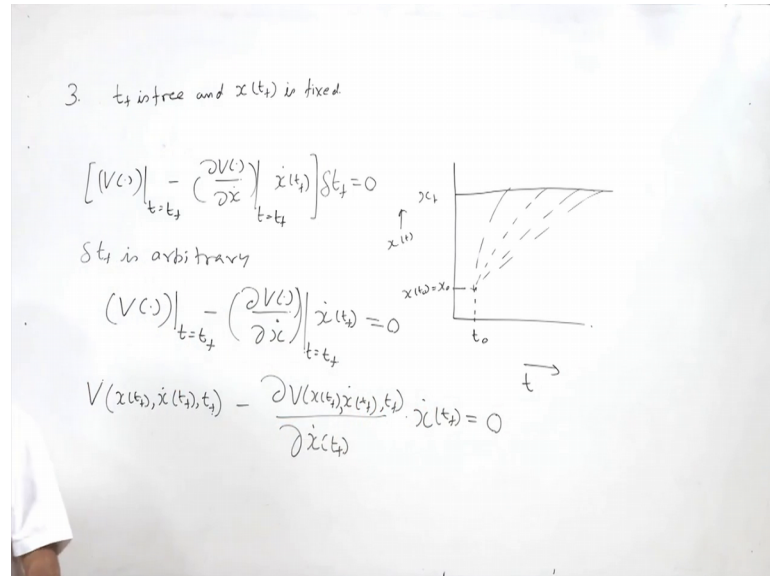 3. t_f is free and x(t_f) is fixed
[(V(·))|_{t=t_f} - (∂V(·)/∂ẋ)|_{t=t_f} ẋ(t_f)] δt_f = 0
δt_f is arbitrary
(V(·))|_{t=t_f} - (∂V(·)/∂ẋ)|_{t=t_f} ẋ(t_f) = 0
V(x(t_f), ẋ(t_f), t_f) - ∂V(x(t_f), ẋ(t_f), t_f)/∂ẋ(t_f) · ẋ(t_f) = 0
x_f
↑
x(t)
x(t_0) = x_0
t_0
t →